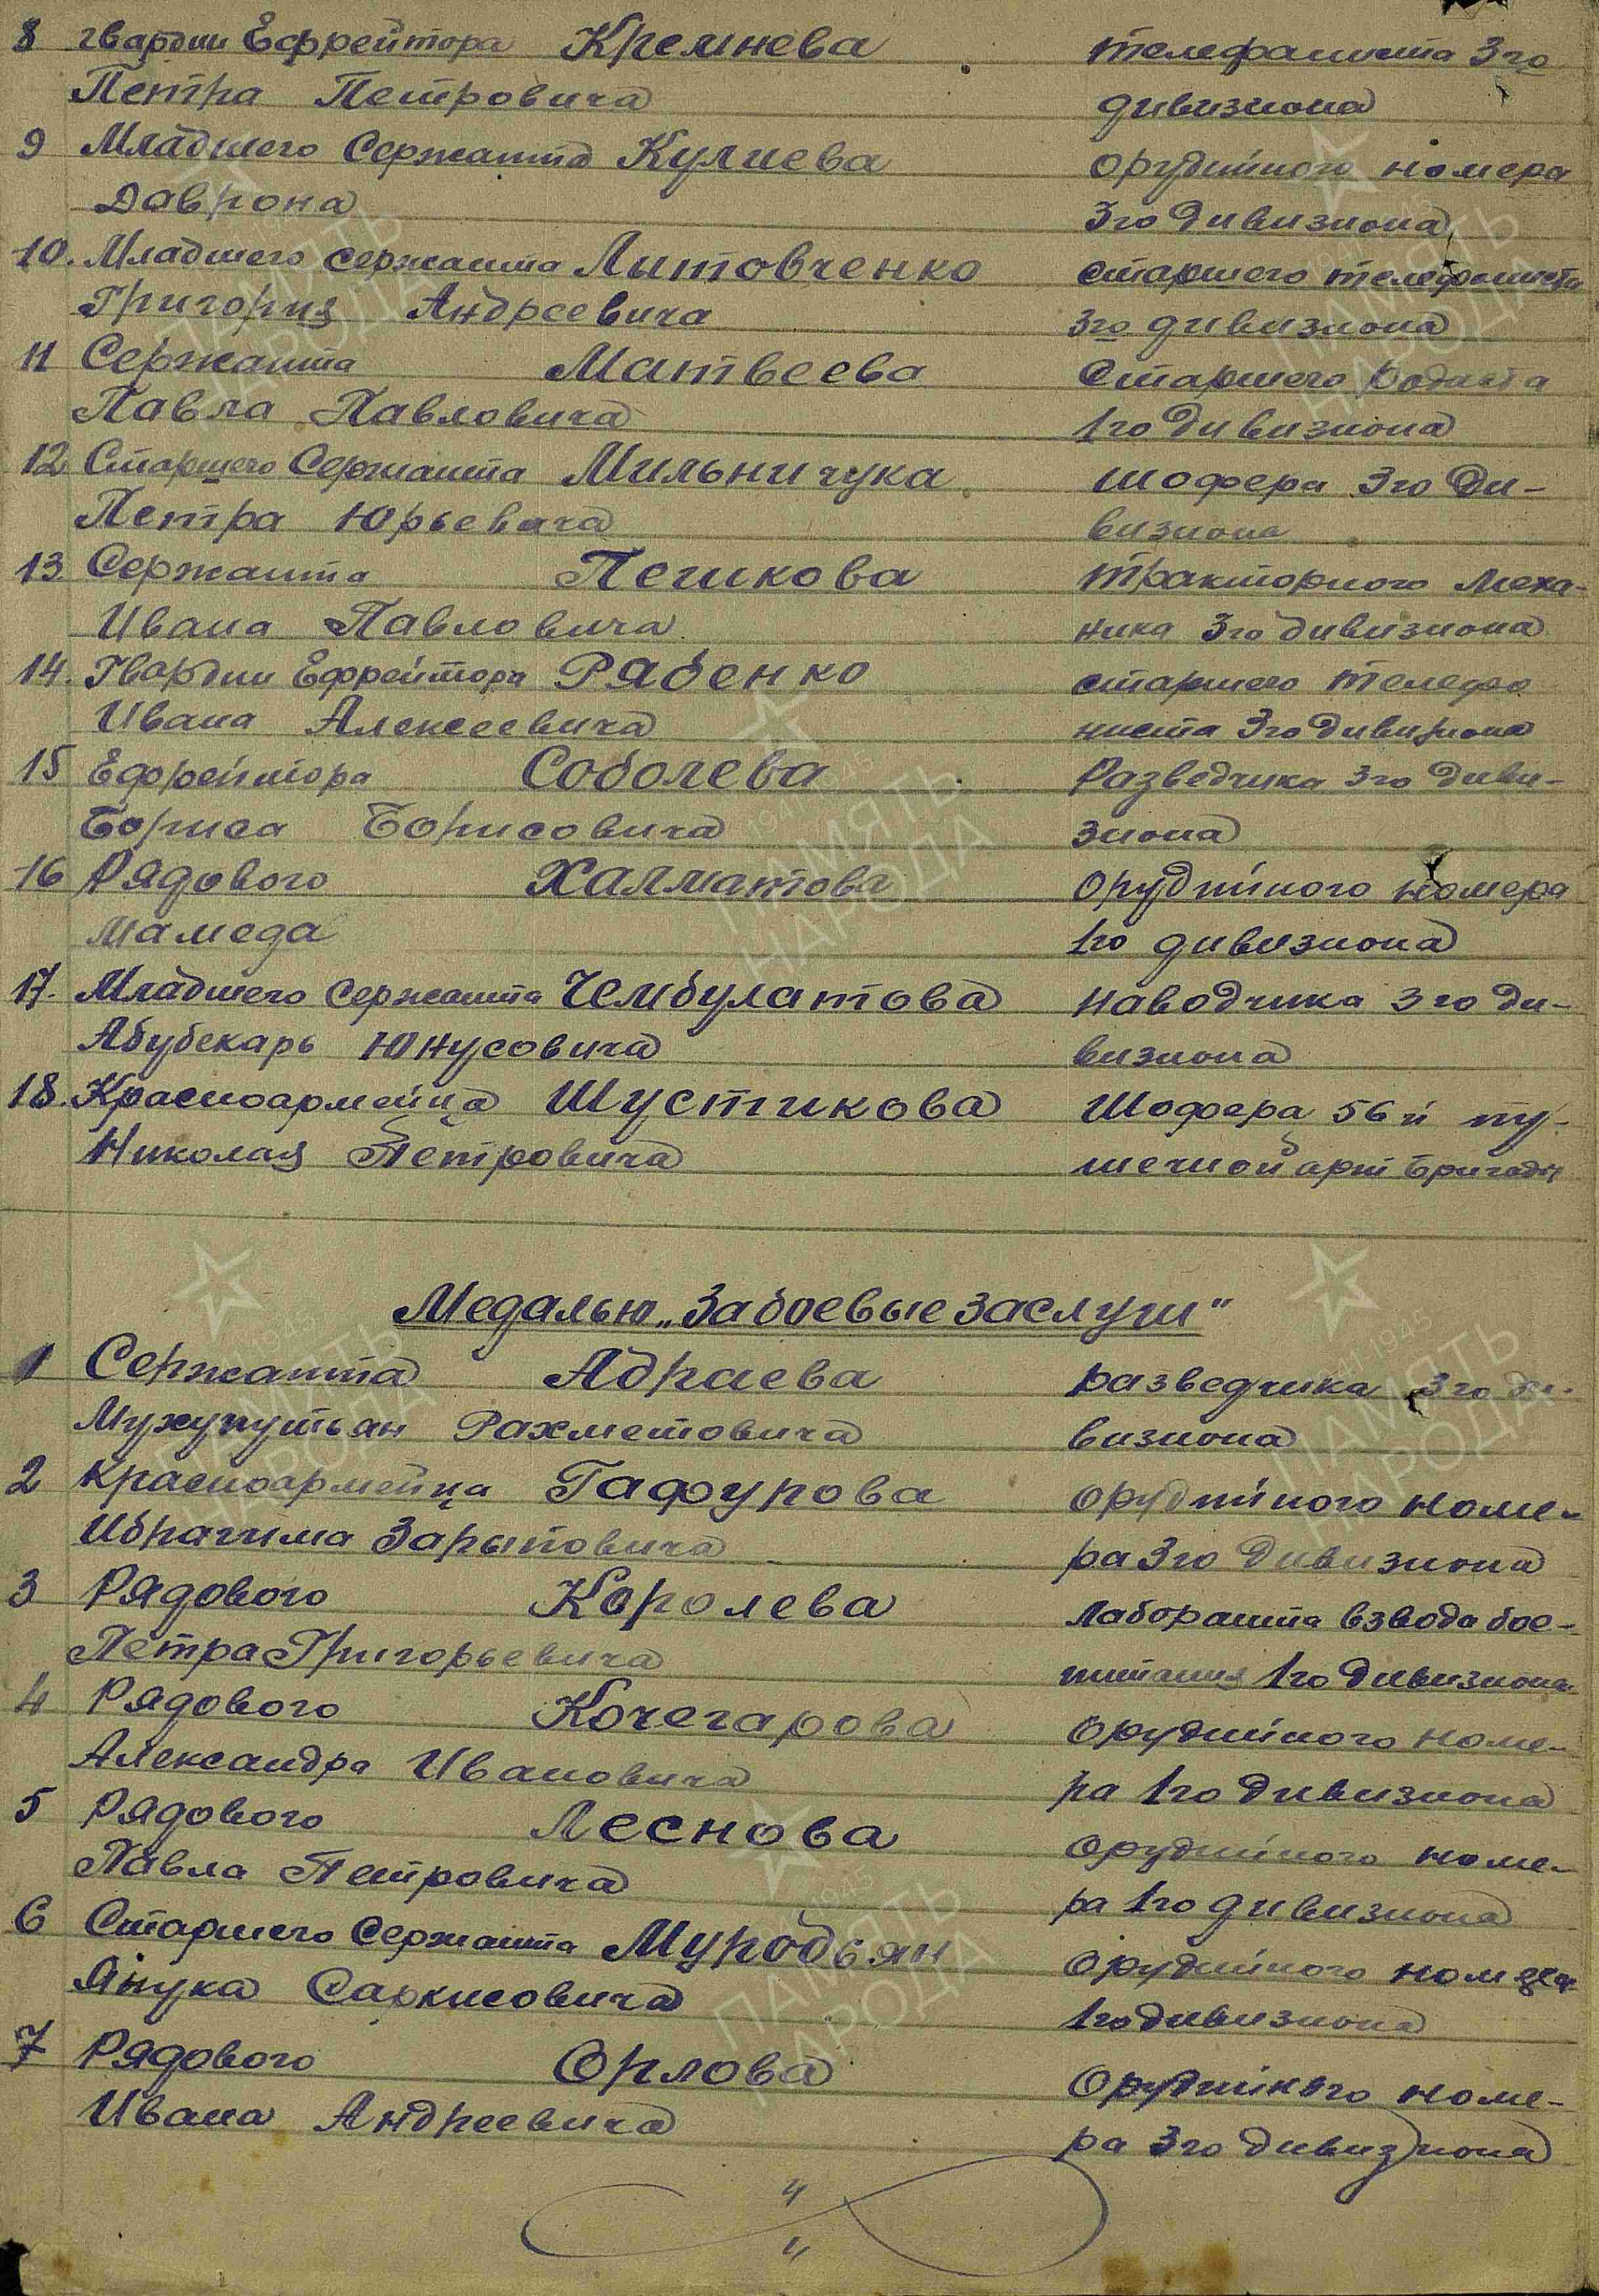 8 гвардии Ефрейтора Кремнева телефониста 3го
Петра Петровича дивизиона
9 Младшего Сержанта Кулиева орудийного номера
Даврона 3го дивизиона
10. Младшего сержанта Литовченко старшего телефониста
Григория Андреевича 3го дивизиона
11 Сержанта Матвеева Старшего
Павла Павловича 1го дивизиона
12 Старшего Сержанта Мильничука шофера 3го Ди-
Петра Юрьевича визиона
13. Сержанта Пешкова тракторного меха-
Ивана Павловича ника 3го дивизиона
14. Гвардии Ефрейтора Рябенко старшего телефо
Ивана Алексеевича ниста 3го дивизиона
15 Ефрейтора Соболева Разведчика 3го диви-
Бориса Борисовича зиона
16 Рядового Халматова орудийного номера
Мамеда 1го дивизиона
17. Младшего сержанта Чембулатова наводчика 3го ди-
Абубекарь Юнусовича визиона
18. Красноармейца Шустикова Шофера 56й пу-
Николая Петровича шечной арт бригады
Медалью „За боевые заслуги"
1 Сержанта Адраева разведчика 3го ди-
Рахметовича визиона
2 Красноармейца Гафурова орудийного номе-
Ибрагима Зарыповича ра 3го дивизиона
3 Рядового Королева Лаборанта взвода бое-
Петра Григорьевича питания 1го дивизиона
4 Рядового Кочегарова Орудийного номе-
Александра Ивановича ра 1го дивизиона
5 Рядового Леснова орудийного номе-
Павла Петровича ра 1го дивизиона
6 Старшего Сержанта Муродьян Орудийного номера
Янука Саркисовича 1го дивизиона
7 Рядового Орлова Орудийного номе-
Ивана Андреевича ра 3го дивизиона
1941-1945
ПАМЯТЬ
НАРОДА